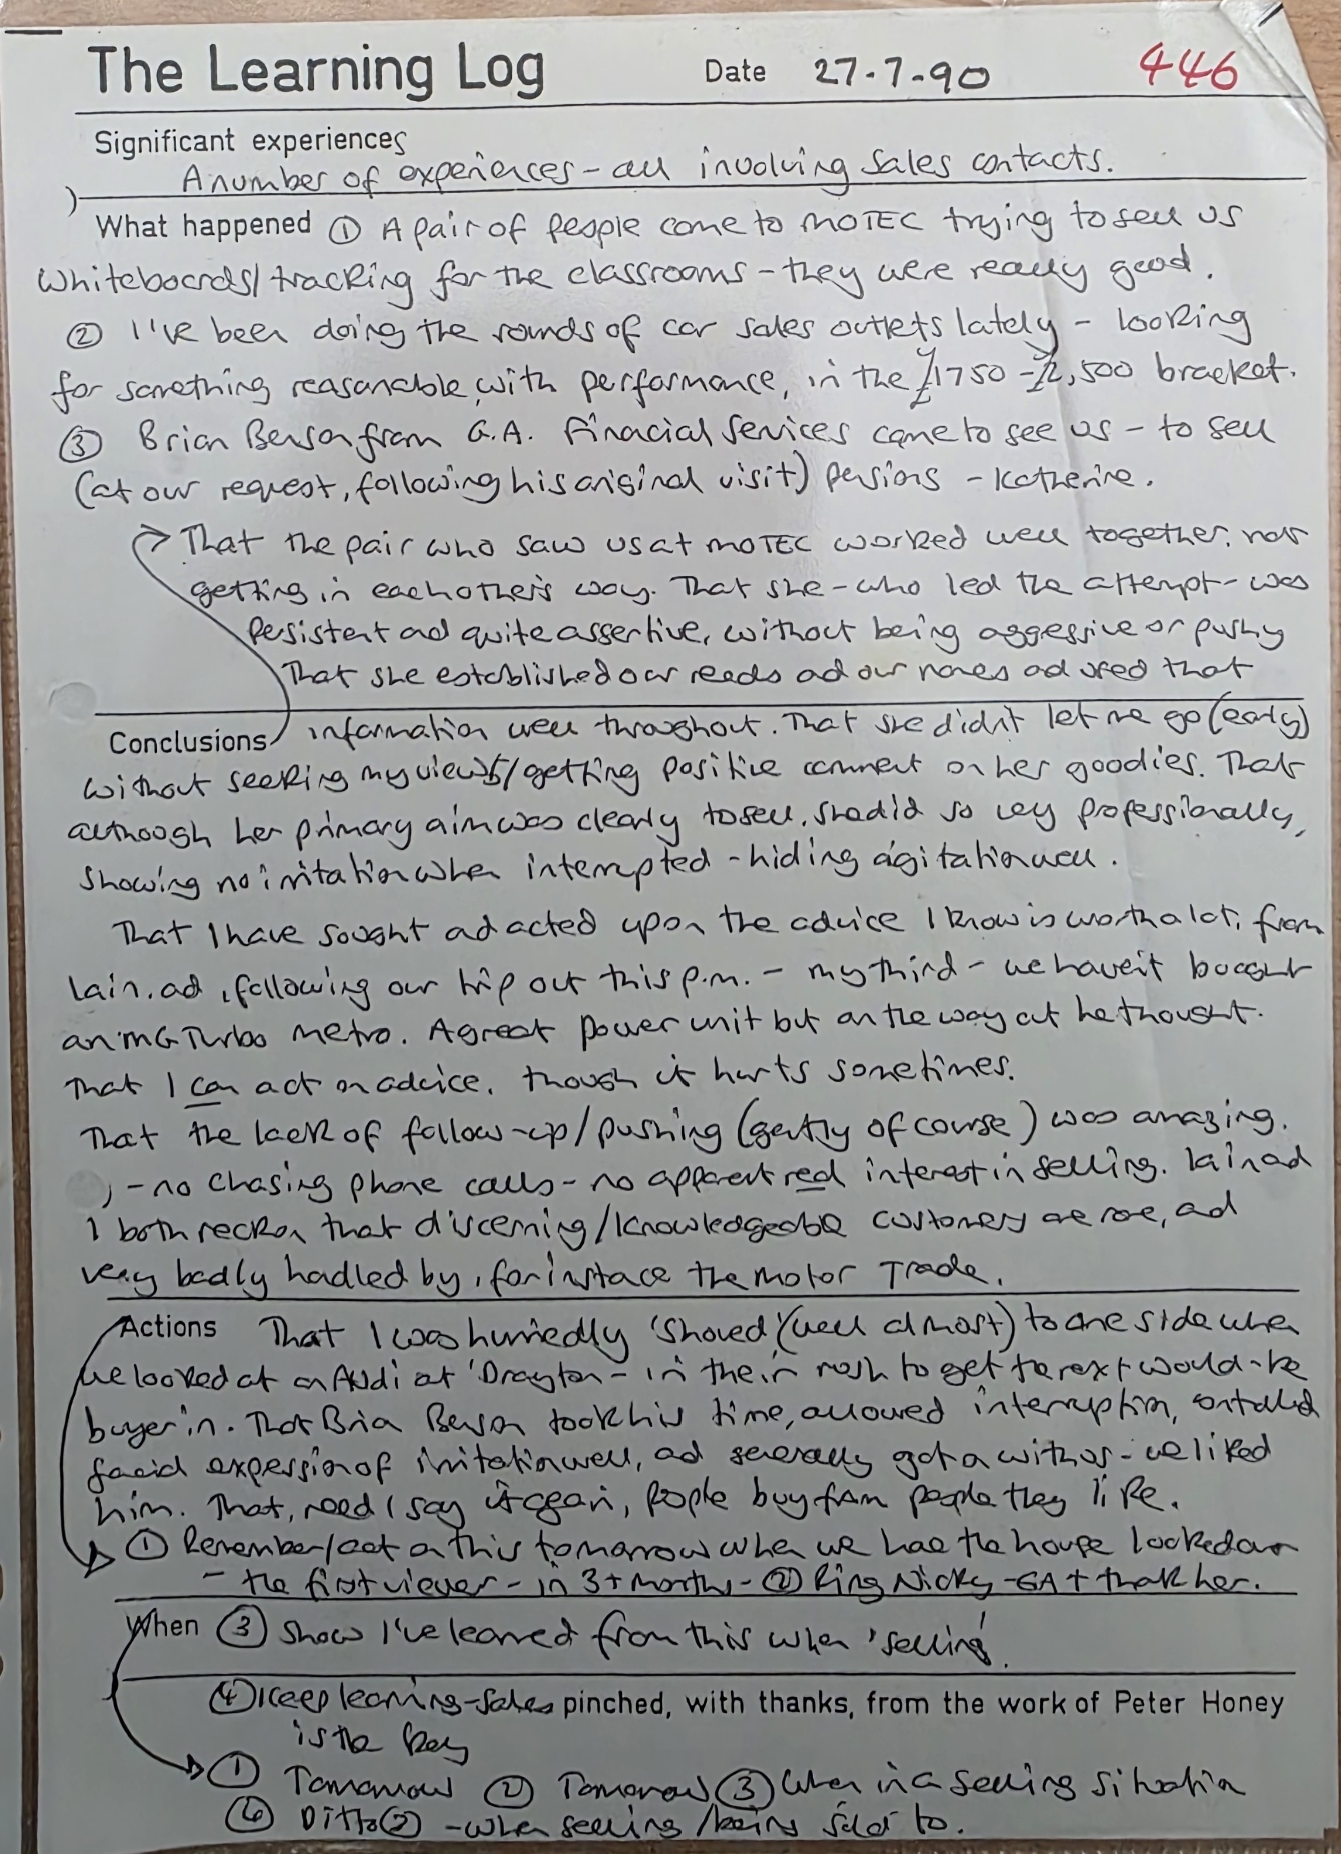 The Learning Log Date 27.7.90 446
Significant experiences
A number of experiences - all involving sales contacts.
What happened ① A pair of people come to MOTEC trying to sell us
whiteboards/tracking for the classrooms - they were really good.
② I've been doing the rounds of car sales outlets lately - looking
for something reasonable, with performance, in the £1750 - £2,500 bracket.
③ Brian Benson from G.A. Finacial Services came to see us - to sell
(at our request, following his original visit) pensions - Katherine.
That the pair who saw us at MOTEC worked well together, not
getting in each other's way. That she - who led the attempt - was
persistent and quite assertive, without being aggressive or pushy
That she established our needs and our names and used that
Conclusions information well throughout. That she didn't let me go (early)
without seeking my views/getting positive comment on her goodies. That
although her primary aim was clearly to sell, she did so very professionally,
showing no irritation when interrupted - hiding agitation well.
That I have sought and acted upon the advice I know is worth a lot, from
Iain, and, following our trip out this p.m. - my third - we haven't bought
an MG Turbo Metro. A great power unit but on the way out he thought.
That I can act on advice, though it hurts sometimes.
That the lack of follow-up/pushing (gently of course) was amazing.
- no chasing phone calls - no apparent real interest in selling. Iain and
I both reckon that discerning/knowledgeable customers are rare, and
very badly handled by, for instance the Motor Trade.
Actions That I was hurriedly 'shoved' (well almost) to one side when
we looked at an Audi at 'Drayton - in their rush to get the next would-be
buyer in. That Brian Benson took his time, allowed interruption, controlled
facial expression of irritation well, and generally got on with us - we liked
him. That, need I say it again, people buy from people they like.
① Remember/act on this tomorrow when we have the house looked over
- the first viewer - in 3+ months - ② Ring Nicky - GA + thank her.
When ③ Show I've learned from this when 'selling'.
④ Keep learning - sales pinched, with thanks, from the work of Peter Honey
is the key
① Tomorrow ② Tomorrow ③ When in a selling situation
④ Ditto ② - when selling/being sold to.